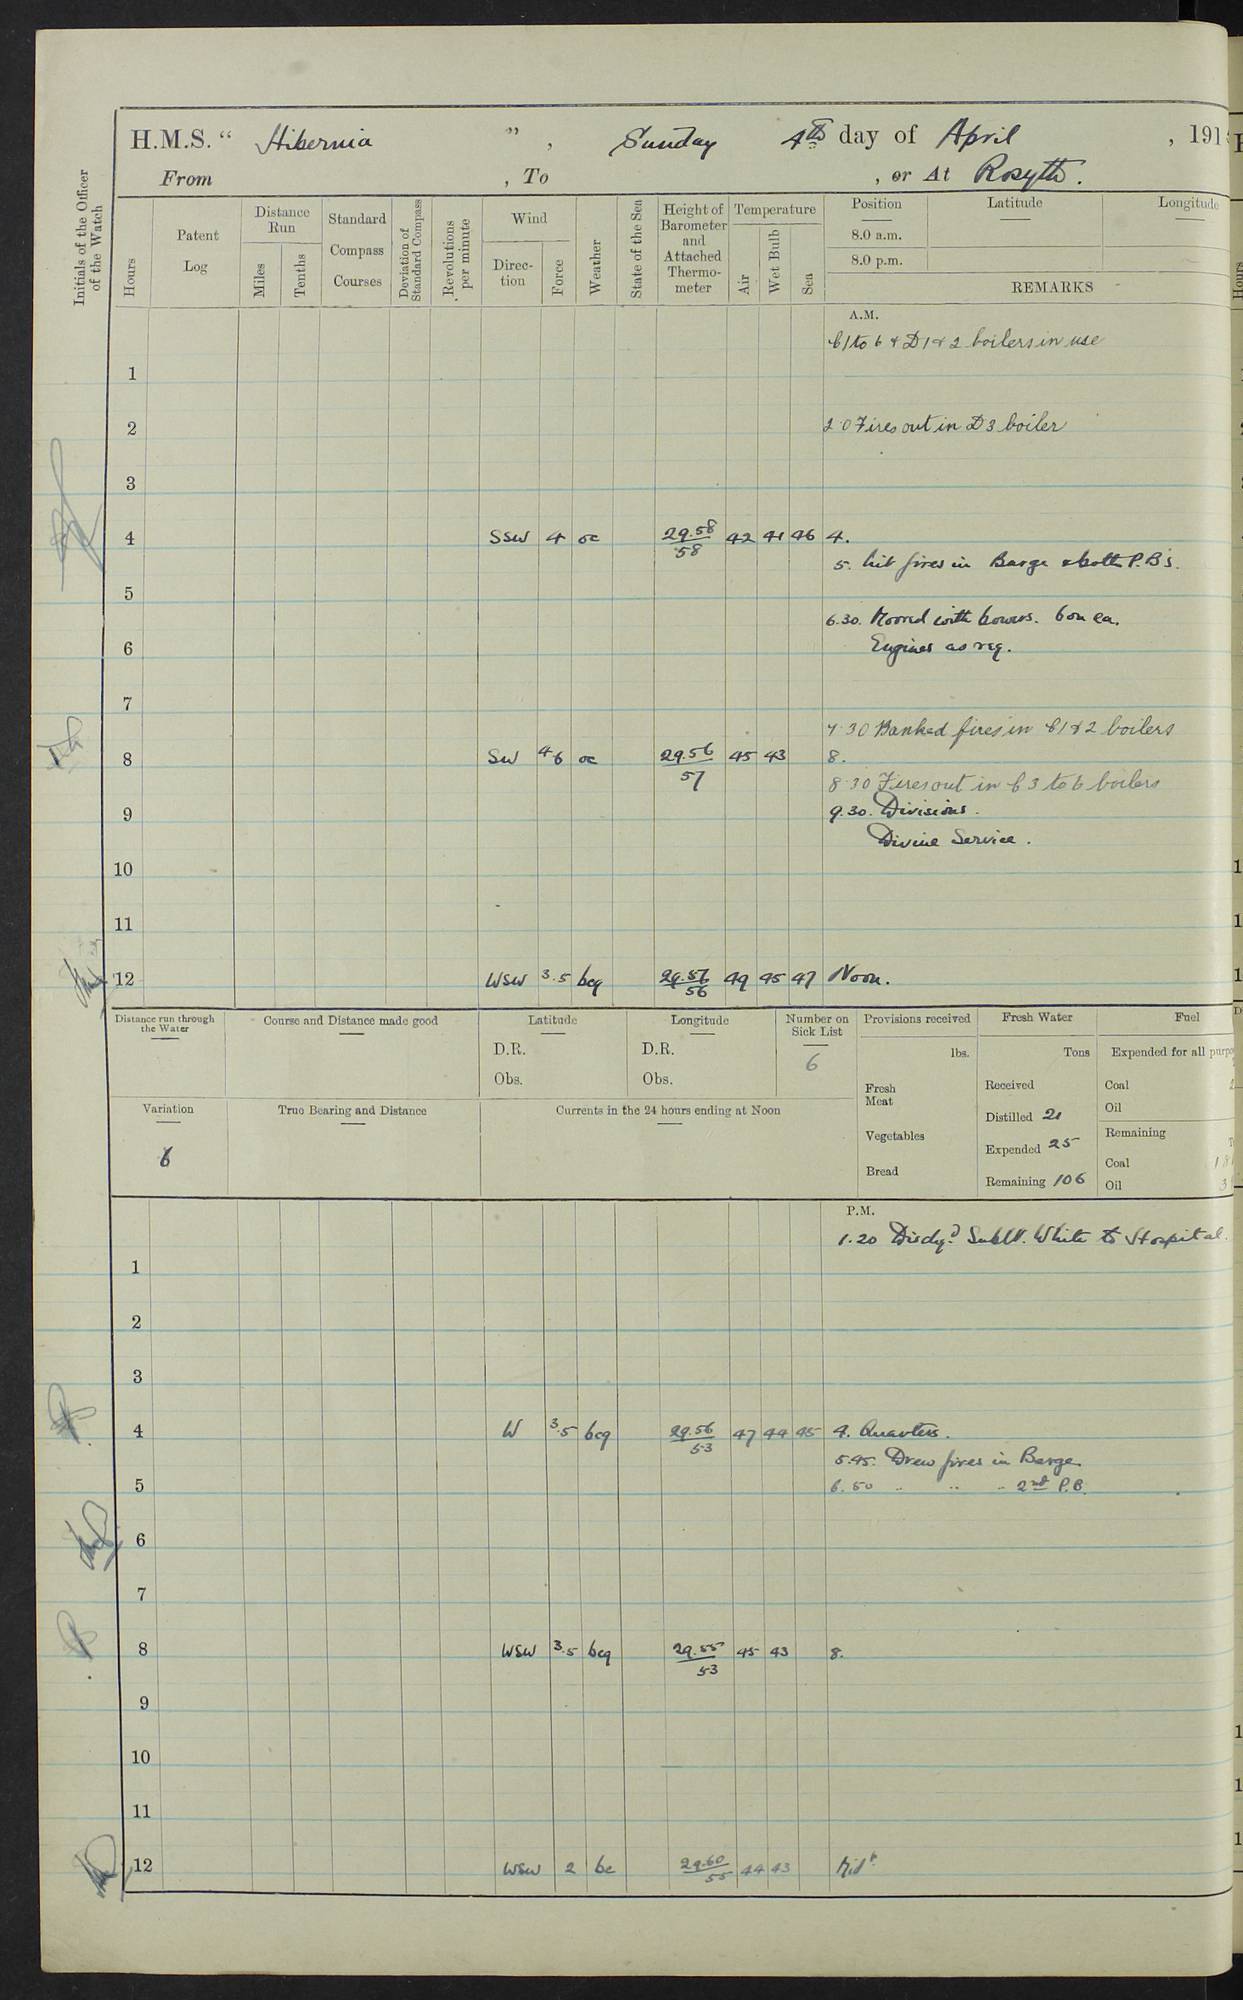 H.M.S. “ Hibernia ”, Sunday 4th day of April , 191
From , To , or At Rosyth.
Initials of the Officer of the Watch
Hours
Patent Log
Distance Run
Miles
Tenths
Standard Compass Courses
Deviation of Standard Compass
Revolutions per minute
Wind
Direction
Force
Weather
State of the Sea
Height of Barometer and Attached Thermometer
Temperature
Air
Wet Bulb
Sea
Position
Latitude
Longitude
8.0 a.m.
8.0 p.m.
REMARKS
A.M.
C1 to 6 & D1 & 2 boilers in use
1
2 2.0 Fires out in D3 boiler
3
4 SSW 4 oc 29.58 58 42 41 46 4.
5. Lit fires in Barge & both P.B's.
5
6.30. Moored with bowers. 6 on ea.
6 Engines as req.
7
7.30 Banked fires in C1 & 2 boilers
8 SW 4-6 oc 29.56 57 45 43 8.
8.30 Fires out in C3 to 6 boilers
9 9.30. Divisions.
Divine Service.
10
11
12 WSW 3.5 bcq 29.57 56 49 45 47 Noon.
Distance run through the Water
Course and Distance made good
Latitude
D.R.
Obs.
Longitude
D.R.
Obs.
Number on Sick List
6
Provisions received
lbs.
Fresh Meat
Vegetables
Bread
Fresh Water
Tons
Received
Distilled 21
Expended 25
Remaining 106
Fuel
Expended for all
Coal
Oil
Remaining
Coal
Oil
Variation
6
True Bearing and Distance
Currents in the 24 hours ending at Noon
P.M.
1.20 Dischgd SubLt. White to Hospital.
1
2
3
4 W 3.5 bcq 29.56 53 47 44 45 4. Quarters.
5.45. Drew fires in Barge
5 6.50 " " " 2nd P.B.
6
7
8 WSW 3.5 bcq 29.55 53 45 43 8.
9
10
11
12 WSW 2 bc 29.60 55 44 43 Midt.